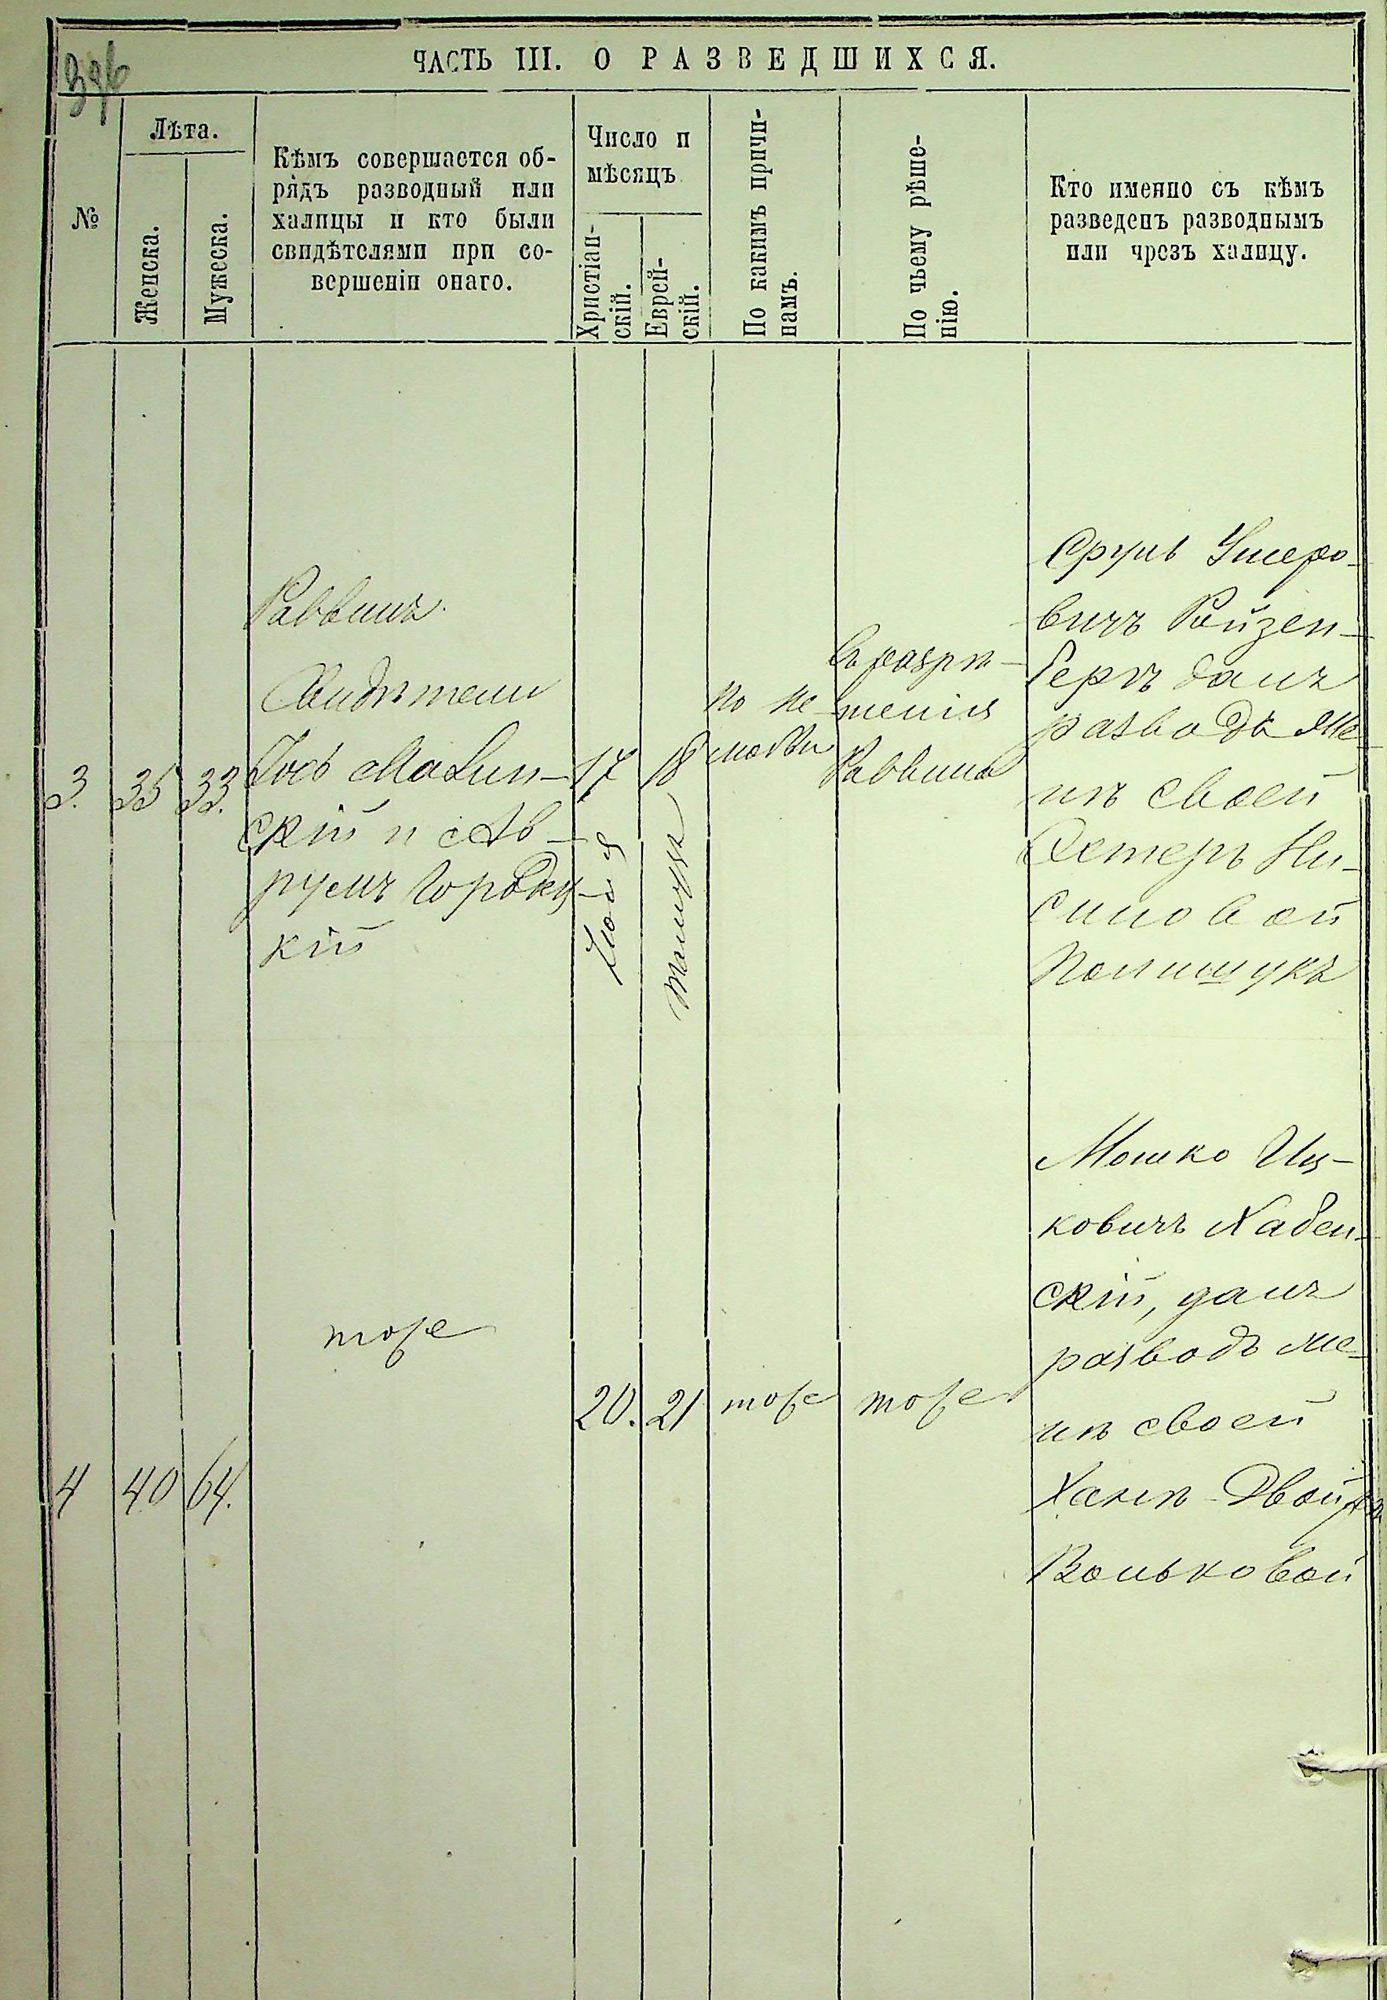 396
ЧАСТЬ III. О РАЗВЕДШИХСЯ.
№
Лѣта.
Женска.
Мужеска.
Кѣмъ совершается об-
рядъ разводный или
халицы и кто были
свидѣтелями при со-
вершеніи онаго.
Число и
мѣсяцъ
Христіан-
скій.
Еврей-
скій.
По какимъ причи-
намъ.
По чьему рѣше-
нію.
Кто именно съ кѣмъ
разведенъ разводнымъ
или чрезъ халицу.
3.
35
33.
Раввинъ
Свидѣтели
Іось Малин-
скій и Ав-
румъ
кій
17
Іюля
18
Тамузъ
по не-
любви
Съ разрѣ-
шенія
Раввина
Сруль Ушеро-
вичъ Ройзен-
бергъ далъ
разводъ же-
нѣ своей
Эстеръ Ни-
синовой
Полищукъ
4
40
64.
тоже
20.
21
тоже
тоже
Мошко Иц-
ковичъ Хабен-
скій, далъ
разводъ же-
нѣ своей
Ханѣ-Двойрѣ
Вольковой